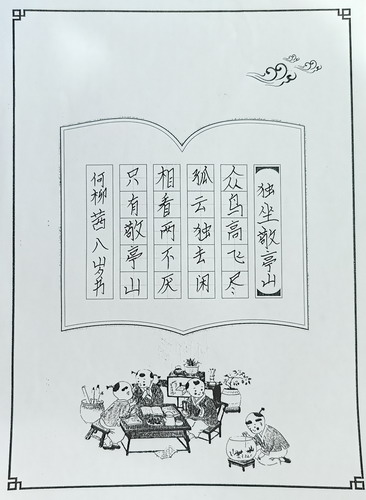 独坐敬亭山
众鸟高飞尽
孤云独去闲
相看两不厌
只有敬亭山
何柳茜八岁书